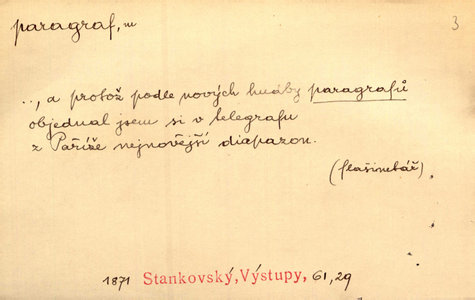 paragraf, m
3
.., a protož podle nových hudby paragrafů
objednal jsem si v telegrafu
z Paříže nejnovější diapazon.
(flašinetář).
1871 Stankovský, Výstupy, 61, 29